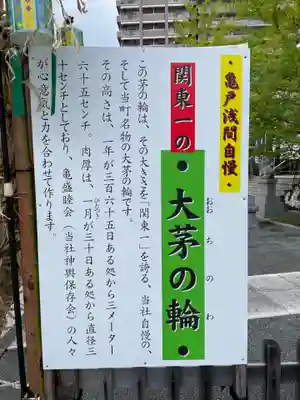 ・亀戸浅間自慢・
関東一の
・大茅の輪・
おおちのわ
この茅の輪は、その大きさを「関東一」を誇る、当社自慢の、
そして当町名物の大茅の輪です。
その高さは、一年が三百六十五日ある処から三メーター
六十五センチ。肉厚は、一月が三十日ある処から直径三
ひとつき
十センチとしており、亀盛睦会（当社神輿保存会）の人々
が心意気と力を合わせて作ります。